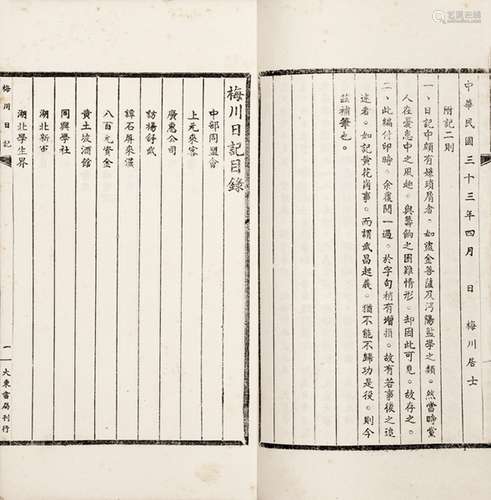 中華民國三十三年四月　日　梅川居士
附記二則
一、日記中頗有嫌瑣屑者。如盜金菩薩及瀋陽監學之類。然當時黨
人在窘急中之風趣。與籌餉之困難情形。却因此可見。故存之。
二、此編付印時。余覆閱一過。於字句稍有增損。故有若事後之追
述者。如記黃花崗事。而謂武昌起義。猶不能不歸功是役。則今
茲補筆也。
梅川日記目錄
中部同盟會
上元來客
廣惠公司
訪楊舒武
譚石屏來漢
八百元資金
黃土坡酒館
同興學社
湖北新軍
湖北學生界
梅川日記
一
大東書局刊行